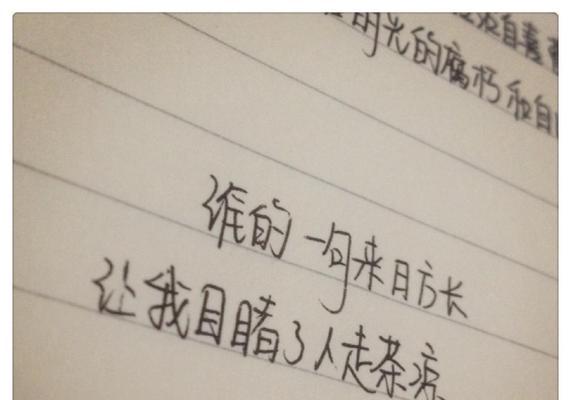 自
光的腐朽和自
谁的一句来日方长
让我目睹了人走茶凉